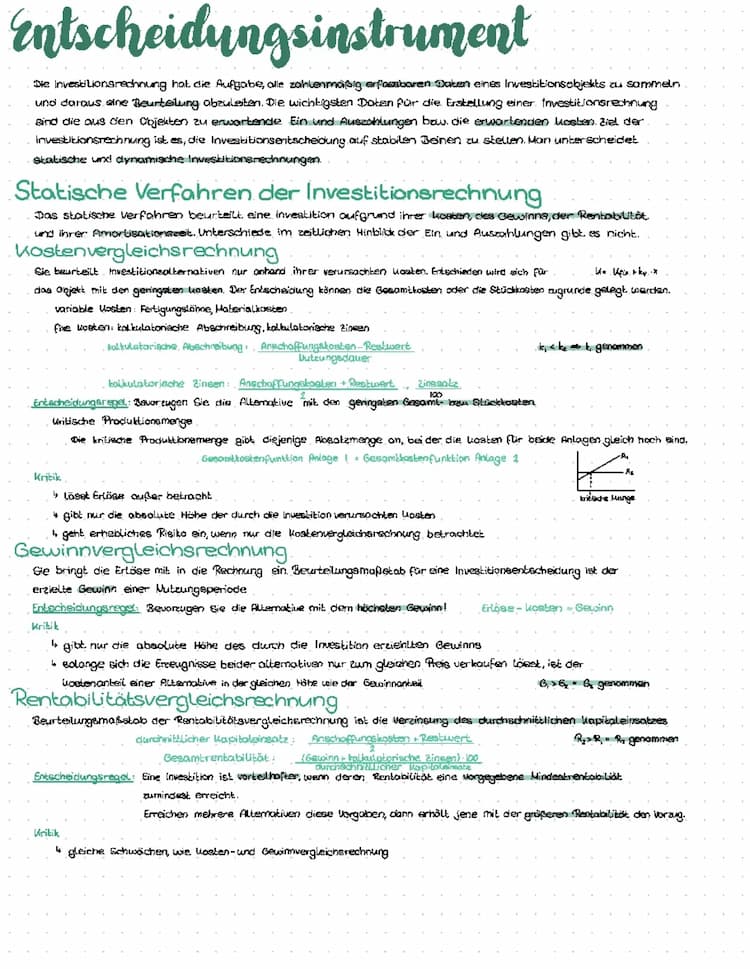 Entscheidungsinstrument
Die Investitionsrechnung hat die Aufgabe, alle zahlenmäßig erfassbaren Daten eines Investitionsobjekts zu sammeln
und daraus eine Beurteilung abzuleiten. Die wichtigsten Daten für die Erstellung einer Investitionsrechnung
sind die aus den Objekten zu erwartende Ein und Auszahlungen bzw. die erwartenden Kosten. Ziel der
Investitionsrechnung ist es, die Investitionsentscheidung auf stabilen Beinen zu stellen. Man unterscheidet
statische und dynamische Investitionsrechnungen.
Statische Verfahren der Investitionsrechnung
Das statische Verfahren beurteilt eine Investition aufgrund ihrer Kosten, des Gewinns, der Rentabilität
und ihrer Amortisationszeit. Unterschiede im zeitlichen Hinblick der Ein und Auszahlungen gibt es nicht.
Kostenvergleichsrechnung
Sie beurteilt Investitionsalternativen nur anhand ihrer verursachten Kosten. Entschieden wird sich für
das Objekt mit den geringsten Kosten. Der Entscheidung können die Gesamtkosten oder die Stückkosten zugrunde gelegt werden.
variable Kosten: Fertigungslöhne, Materialkosten
fixe Kosten: kalkulatorische Abschreibung, kalkulatorische Zinsen
kalkulatorische Abschreibung: Anschaffungskosten - Restwert
Nutzungsdauer
k₁ < k₂ ⇒ k₁ genommen
kalkulatorische Zinsen: Anschaffungskosten + Restwert · Zinssatz
2 100
Entscheidungsregel: Bevorzugen Sie die Alternative mit den geringsten Gesamt- bzw Stückkosten
kritische Produktionsmenge
Die kritische Produktionsmenge gibt diejenige Absatzmenge an, bei der die Kosten für beide Anlagen gleich hoch sind.
Gesamtkostenfunktion Anlage 1 = Gesamtkostenfunktion Anlage 2
A₁
A₂
kritische Menge
Kritik
↳ lässt Erlöse außer betracht
↳ gibt nur die absolute Höhe der durch die Investition verursachten Kosten
↳ geht erhebliches Risiko ein, wenn nur die Kostenvergleichsrechnung betrachtet
Gewinnvergleichsrechnung
Sie bringt die Erlöse mit in die Rechnung ein. Beurteilungsmaßstab für eine Investitionsentscheidung ist der
erzielte Gewinn einer Nutzungsperiode
Entscheidungsregel: Bevorzugen Sie die Alternative mit dem höchsten Gewinn! Erlöse - Kosten = Gewinn
Kritik
↳ gibt nur die absolute Höhe des durch die Investition erziehlten Gewinns
↳ solange sich die Erzeugnisse beider alternativen nur zum gleichen Preis verkaufen lässt, ist der
Kostenanteil einer Alternative in der gleichen Höhe wie der Gewinnanteil
G₁ > G₂ = G₁ genommen
Rentabilitätsvergleichsrechnung
Beurteilungsmaßstab der Rentabilitätsvergleichsrechnung ist die Verzinsung des durchschnittlichen Kapitaleinsatzes
durchnittlicher Kapitaleinsatz: Anschaffungskosten + Restwert
2
R₂ > R₁ = R₂ genommen
Gesamtrentabilität: (Gewinn + kalkulatorische Zinsen) · 100
durchschnittlicher Kapitaleinsatz
Entscheidungsregel: Eine Investition ist vorteilhafter, wenn deren Rentabilität eine vorgegebene Mindestrentabilität
zumindest erreicht.
Erreichen mehrere Alternativen diese Vorgaben, dann erhält jene mit der größeren Rentabilität den Vorzug.
Kritik
↳ gleiche Schwächen, wie Kosten- und Gewinnvergleichsrechnung